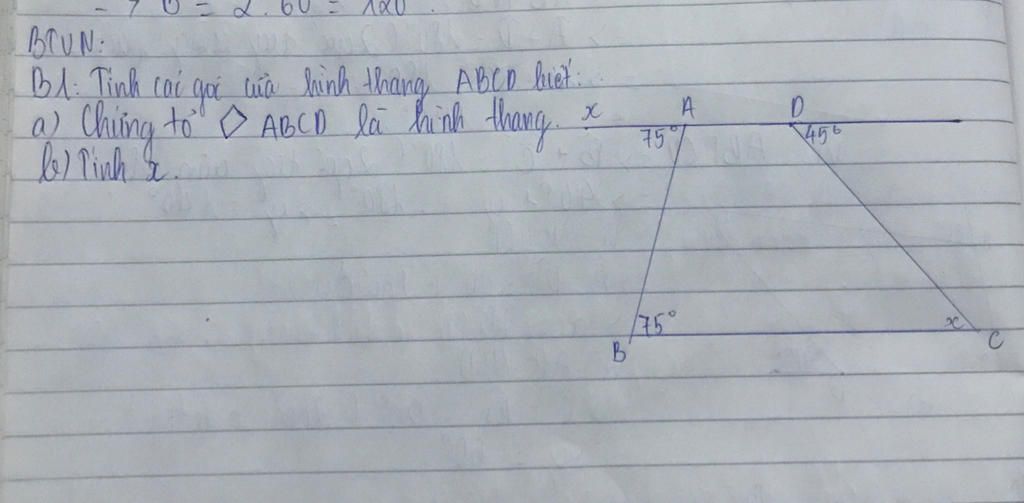 = 2.60 = 120°.
BTVN:
B1: Tính các góc của hình thang ABCD biết:
a) Chứng tỏ ◇ ABCD là hình thang.
b) Tính x.
x A D
75° 45°
75° x
B C